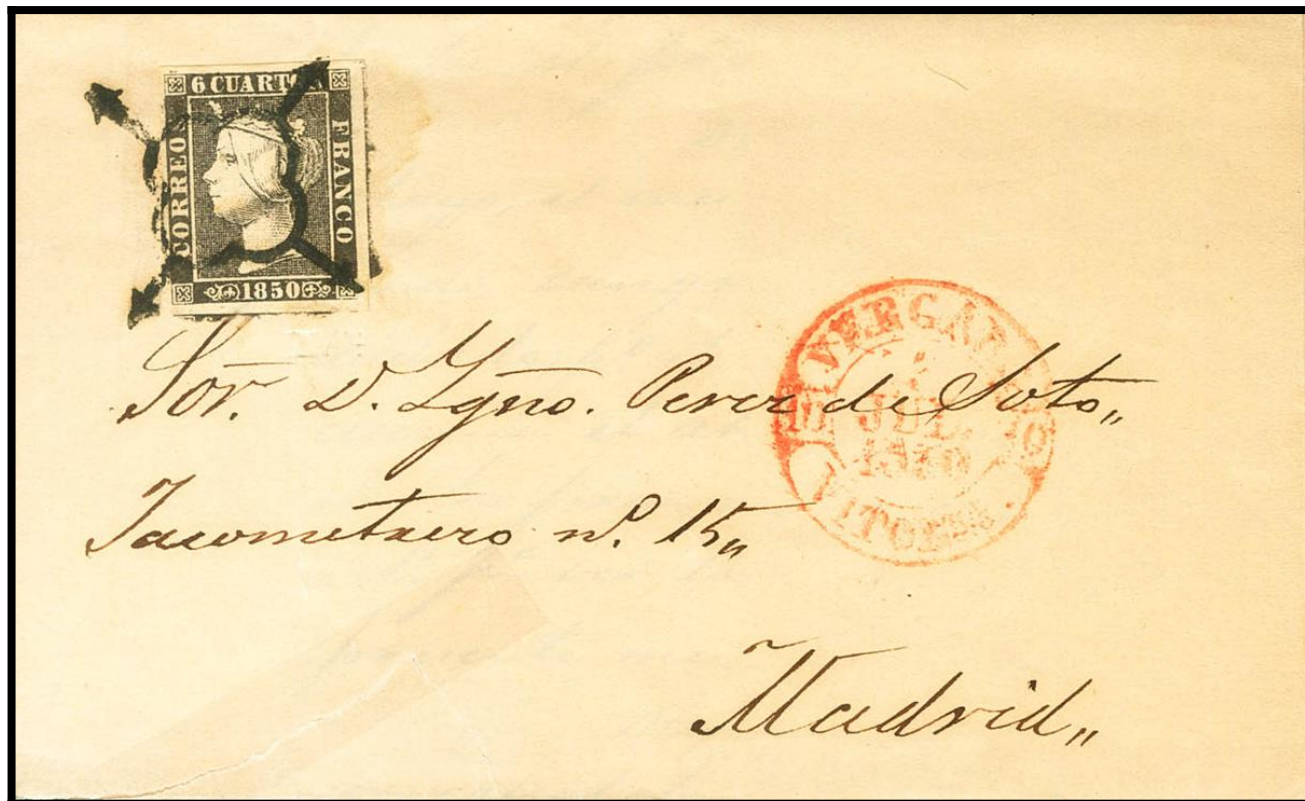 6 CUARTOS
CORREOS
FRANCO
1850
VERGARA
10 10
JUL.
1850
VITORIA.
Sor. D. Ygno. Perez de Soto„
Jacometrezo nº. 15„
Madrid„